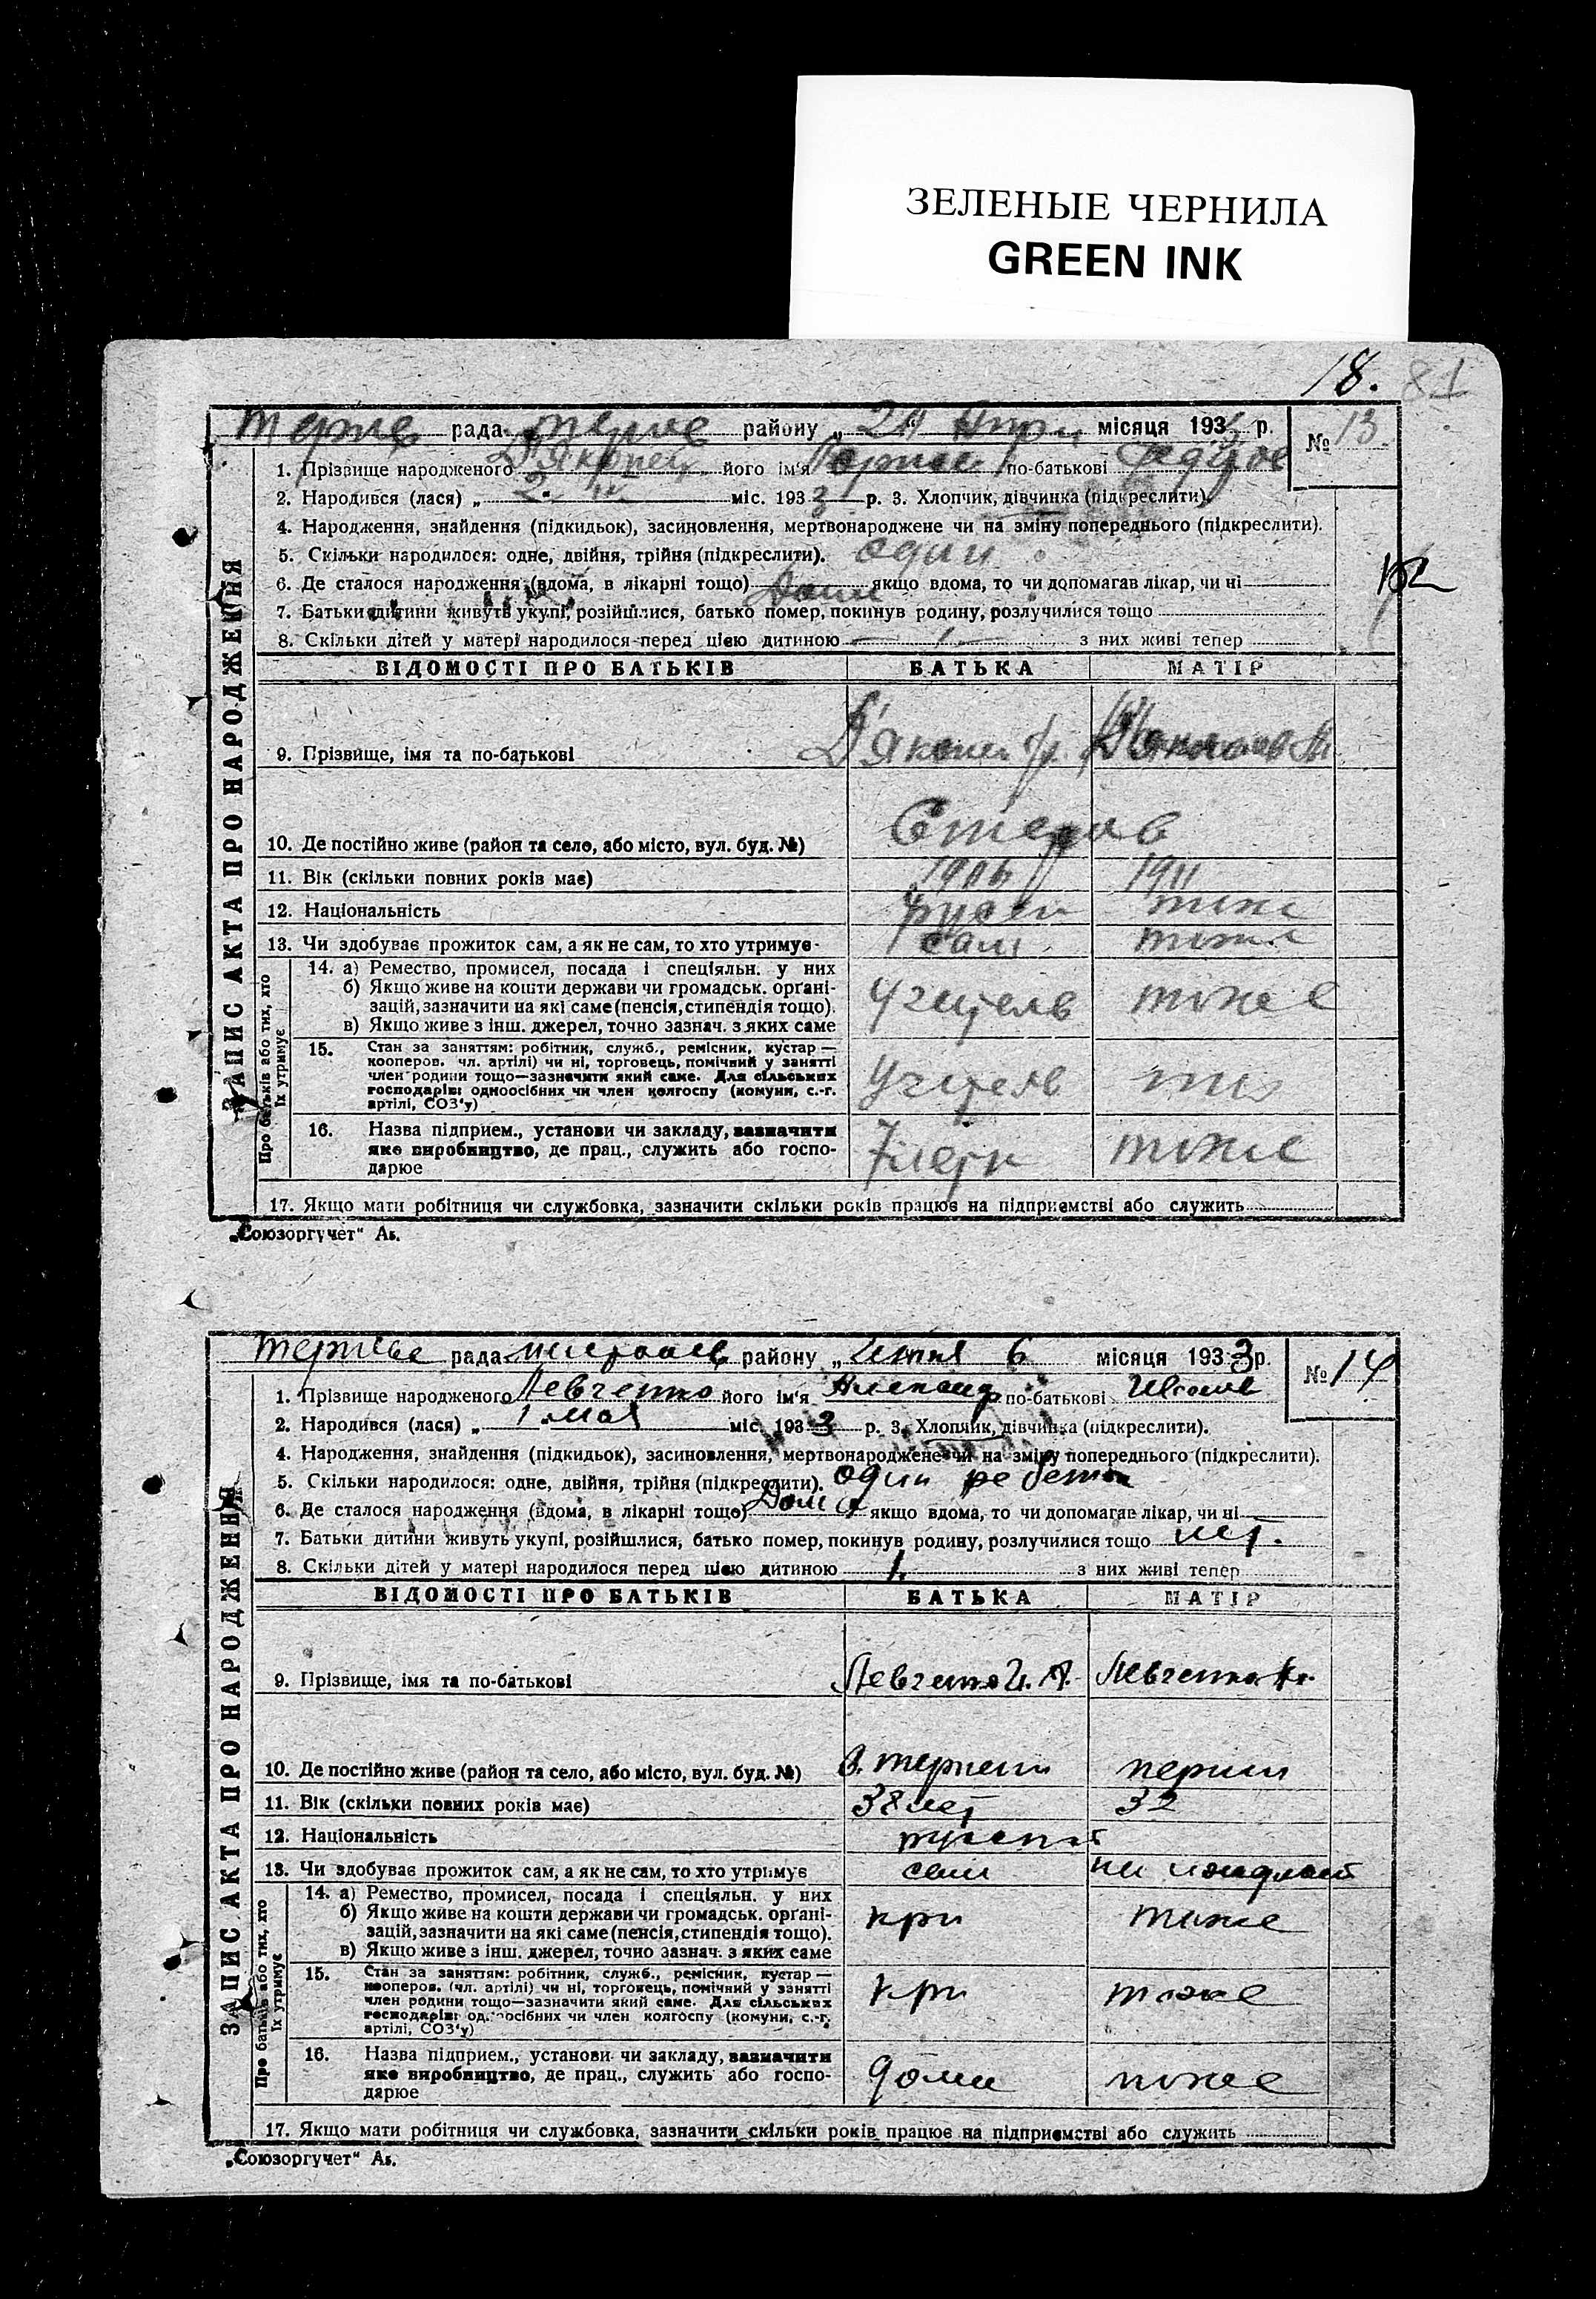 ЗЕЛЕНЫЕ ЧЕРНИЛА
GREEN INK
18. 81
рада району місяця 193 р. № 13
1. Прізвище народженого його ім'я по-батькові
2. Народився (лася) „ 2. міс. 193 3 р. 3. Хлопчик, дівчинка (підкреслити).
4. Народження, знайдення (підкидьок), засиновлення, мертвонароджене чи на зміну попереднього (підкреслити).
5. Скільки народилося: одне, двійня, трійня (підкреслити). один
6. Де сталося народження (вдома, в лікарні тощо) якщо вдома, то чи допомагав лікар, чи ні
7. Батьки дитини живуть укупі, розійшлися, батько помер, покинув родину, розлучилися тощо
8. Скільки дітей у матері народилося перед цією дитиною з них живі тепер
ЗАПИС АКТА ПРО НАРОДЖЕННЯ
ВІДОМОСТІ ПРО БАТЬКІВ БАТЬКА МАТІР
9. Прізвище, імя та по-батькові
10. Де постійно живе (район та село, або місто, вул. буд. №)
11. Вік (скільки повних років має) 1906 1911
12. Національність
13. Чи здобуває прожиток сам, а як не сам, то хто утримує сам тоже
Про батьків або тих, хто їх утримує
14. а) Ремество, промисел, посада і спеціяльн. у них
б) Якщо живе на кошти держави чи громадськ. органі-
зацій, зазначити на які саме (пенсія, стипендія тощо). учитель тоже
в) Якщо живе з інш. джерел, точно зазнач. з яких саме
15. Стан за заняттям: робітник, служб., ремісник, кустар —
кооперов. чл. артілі) чи ні, торговець, помічний у занятті
член родини тощо—зазначити який саме. Для сільських
господарів: одноосібних чи член колгоспу (комуни, с.-г.
артілі, СОЗ'у) учитель
16. Назва підприєм., установи чи закладу, зазначити
яке виробництво, де прац., служить або госпо-
дарює тоже
17. Якщо мати робітниця чи службовка, зазначити скільки років працює на підприємстві або служить
„Союзоргучет“ Аь.
рада району „ 6 місяця 193 3 р. № 14
1. Прізвище народженого Левченко його ім'я Александр по-батькові
2. Народився (лася) „ 1 мая міс. 193 3 р. 3. Хлопчик, дівчинка (підкреслити).
4. Народження, знайдення (підкидьок), засиновлення, мертвонароджене чи на зміну попереднього (підкреслити).
5. Скільки народилося: одне, двійня, трійня (підкреслити). один
6. Де сталося народження (вдома, в лікарні тощо) Дома якщо вдома, то чи допомагав лікар, чи ні
7. Батьки дитини живуть укупі, розійшлися, батько помер, покинув родину, розлучилися тощо нет.
8. Скільки дітей у матері народилося перед цією дитиною 1. з них живі тепер
ЗАПИС АКТА ПРО НАРОДЖЕННЯ
ВІДОМОСТІ ПРО БАТЬКІВ БАТЬКА МАТІР
9. Прізвище, імя та по-батькові Левченко И. А. Левченко
10. Де постійно живе (район та село, або місто, вул. буд. №)
11. Вік (скільки повних років має) 38 лет 32
12. Національність
13. Чи здобуває прожиток сам, а як не сам, то хто утримує сам
Про батьків або тих, хто їх утримує
14. а) Ремество, промисел, посада і спеціяльн. у них
б) Якщо живе на кошти держави чи громадськ. органі-
зацій, зазначити на які саме (пенсія, стипендія тощо). кри тоже
в) Якщо живе з інш. джерел, точно зазнач. з яких саме
15. Стан за заняттям: робітник, служб., ремісник, кустар —
кооперов. (чл. артілі) чи ні, торговець, помічний у занятті
член родини тощо—зазначити який саме. Для сільських
господарів: одноосібних чи член колгоспу (комуни, с.-г.
артілі, СОЗ'у) кри тоже
16. Назва підприєм., установи чи закладу, зазначити
яке виробництво, де прац., служить або госпо-
дарює дома тоже
17. Якщо мати робітниця чи службовка, зазначити скільки років працює на підприємстві або служить
„Союзоргучет“ Аь.